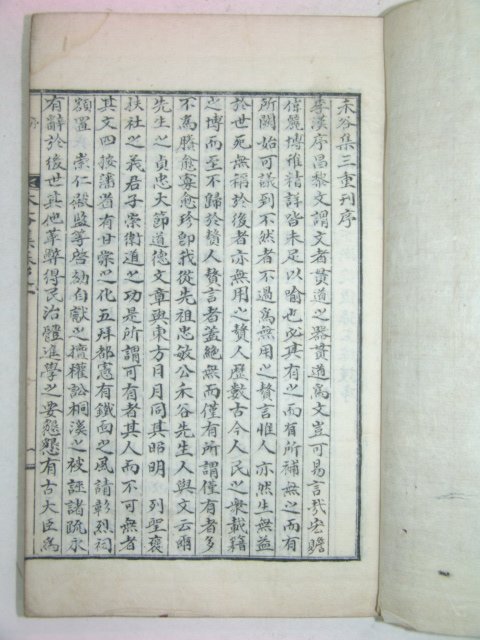 禾谷集三重刊序
李漢序昌黎文謂文者貫道之器貫道爲文豈可易言哉宏贍
偉麗博雅精詳皆未足以喻也必其有之而有所補無之而有
所闕始可議到不然者不過爲無用之贅言惟人亦然生無益
於世死無稱於後者亦無用之贅人歷數古今人民之衆載籍
之博而至不歸於贅人贅言者蓋絶無而僅有所謂僅有者多
不爲勝愈寡愈珍卽我從先祖忠敏公禾谷先生人與文云爾
先生之貞忠大節道德文章與東方日月同其昭明 列聖褒
扶社之義君子崇衛道之功是所謂可有者其人而不可無者
其文四按藩省有甘棠之化五拜都憲有鐵面之風請彰烈祠
額置 崇仁殿監等啓納自獻之擅權訟桐溪之被誣諸疏永
有辭於後世其他革弊得民治體進學之要懇懇有古大臣爲
序